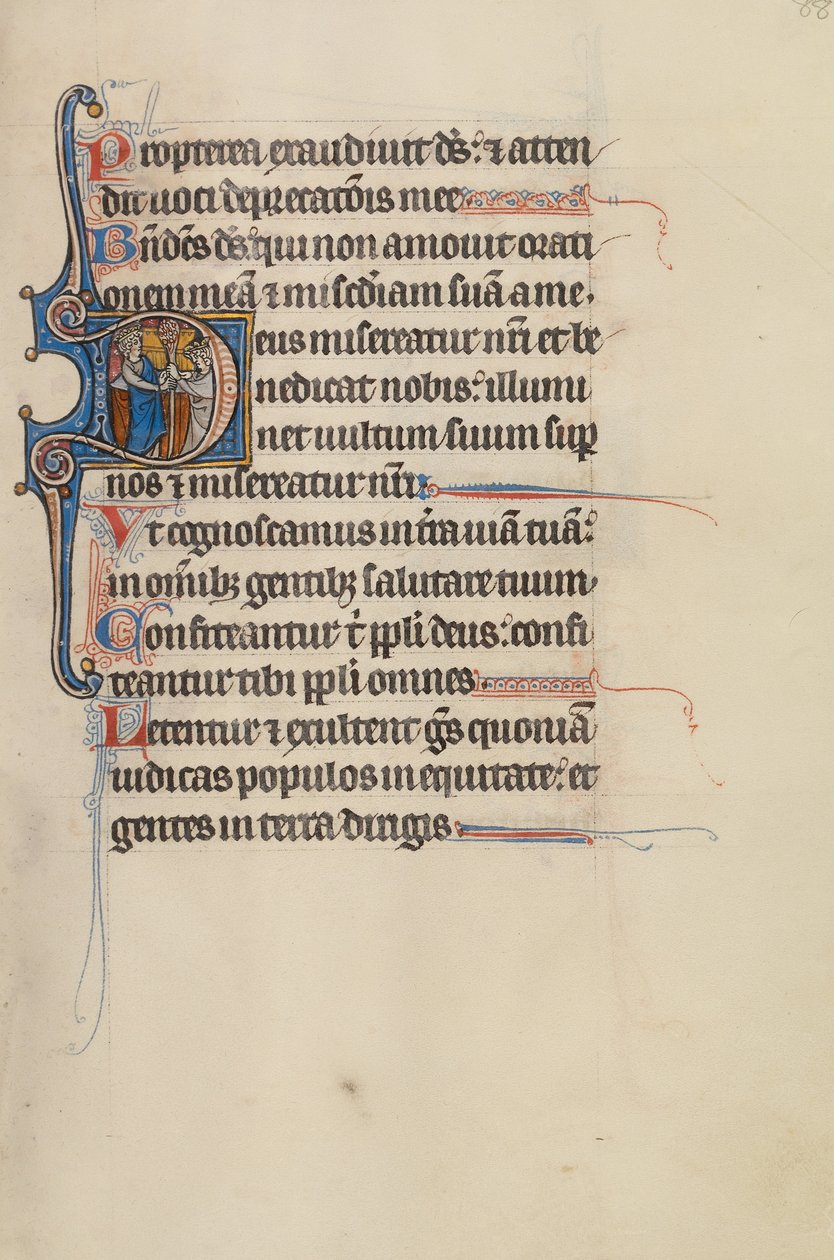 88
Propterea exaudiuit dn̄s: ⁊ atten
dit uoci deprecatōis mee
Bn̄dc̄s ds̄: qui non amouit orati
onem meā ⁊ mis̄c̄diam suā a me.
Deus misereatur nr̄i et be
nedicat nobis: illumi
net uultum suum suꝑ
nos ⁊ misereatur nr̄i
Vt cognoscamus in t̄ra uiā tuā:
in om̄ibꝫ gentibꝫ salutare tuum
Confiteantur t̄ ppl̄i deus: confi
teantur tibi ppl̄i omnes
Letentur ⁊ exultent gēs quoniā
iudicas populos in equitate: et
gentes in terra dirigis